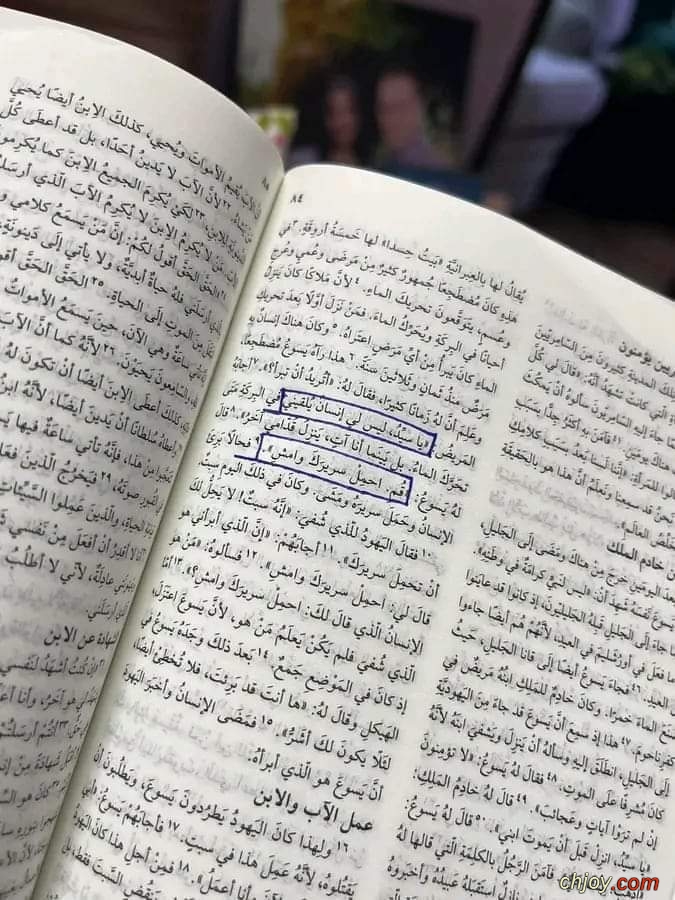 ٨٤
ريين يؤمنون
تلكَ المدينةِ كثيرونَ مِنَ السّامِريّينَ
أةِ الّتي كانتْ تشهَدُ أنَّهُ: «قالَ لي كُلَّ
ا جاءَ إليهِ السّامِريّونَ سألوهُ أنْ يَمكُثَ
هناكَ يومَينِ. ٤١ فآمَنَ بهِ أكثَرُ جِدًّا بسَبَبِ
الوا للمَرأةِ: «إنَّنا لَسنا بَعدُ بسَبَبِ كلامِكِ
نَحنُ قد سمِعنا ونَعلَمُ أنَّ هذا هو بالحَقيقَةِ
خَلِّصُ العالَمِ».
ن خادم الملك
عدَ اليومَينِ خرجَ مِنْ هناكَ ومَضَى إلى الجَليلِ،
يَسوعَ نَفسَهُ شَهِدَ أنْ: «ليس لنَبيٍّ كرامَةٌ في وطَنِهِ».
ا جاءَ إلى الجَليلِ قَبِلهُ الجَليليّونَ، إذ كانوا قد عايَنوا
ما فعَلَ في أورُشَليمَ في العيدِ، لأنَّهُمْ هُم أيضًا جاءوا
العيدِ. ٤٦ فجاءَ يَسوعُ أيضًا إلى قانا الجَليلِ، حَيثُ
صَنَعَ الماءَ خمرًا. وكانَ خادِمٌ للمَلِكِ ابنُهُ مَريضٌ في
كفرِناحومَ. ٤٧ هذا إذ سمِعَ أنَّ يَسوعَ قد جاءَ مِنَ اليَهوديَّةِ
إلى الجَليلِ، انطَلَقَ إليهِ وسألهُ أنْ يَنزِلَ ويَشفيَ ابنَهُ لأنَّهُ
كانَ مُشرِفًا علَى الموتِ. ٤٨ فقالَ لهُ يَسوعُ: «لا تؤمِنونَ
إنْ لم ترَوْا آياتٍ وعَجائبَ». ٤٩ قالَ لهُ خادِمُ المَلِكِ:
«يا سيِّدُ، انزِلْ قَبلَ أنْ يَموتَ ابني». ٥٠ قالَ لهُ يَسوعُ:
«اذهَبْ. فآمَنَ الرَّجُلُ بالكلِمَةِ الّتي قالها لهُ
نازِلٌ استَقبَلهُ عَبيدُهُ وأخبَروهُ
يُقالُ لها بالعِبرانيَّةِ «بَيتُ حِسدا» لها خَمسَةُ أروِقَةٍ. ٣ في
هذِهِ كانَ مُضطَجِعًا جُمهورٌ كثيرٌ مِنْ مَرضَى وعُميٍ وعُرجٍ
وعُسمٍ، يتوَقَّعونَ تحريكَ الماءِ. ٤ لأنَّ مَلاكًا كانَ يَنزِلُ
أحيانًا في البِركَةِ ويُحَرِّكُ الماءَ. فمَنْ نَزَلَ أوَّلًا بَعدَ تحريكِ
الماءِ كانَ يَبرأُ مِنْ أيِّ مَرَضٍ اعتَراهُ. ٥ وكانَ هناكَ إنسانٌ بهِ
مَرَضٌ منذُ ثَمانٍ وثَلاثينَ سنَةً. ٦ هذا رآهُ يَسوعُ مُضطَجِعًا،
وعَلِمَ أنَّ لهُ زَمانًا كثيرًا، فقالَ لهُ: «أتُريدُ أنْ تبرأَ؟». ٧ أجابَهُ
المَريضُ: «يا سيِّدُ، ليس لي إنسانٌ يُلقيني في البِركَةِ مَتَى
تحَرَّكَ الماءُ. بل بَينَما أنا آتٍ، يَنزِلُ قُدّامي آخَرُ». ٨ قالَ
لهُ يَسوعُ: «قُمِ. احمِلْ سريرَكَ وامشِ». ٩ فحالًا بَرِئَ
الإنسانُ وحَمَلَ سريرَهُ ومَشَى. وكانَ في ذلكَ اليومِ سبتٌ.
١٠ فقالَ اليَهودُ للّذي شُفيَ: «إنَّهُ سبتٌ! لا يَحِلُّ لكَ
أنْ تحمِلَ سريرَكَ». ١١ أجابَهُمْ: «إنَّ الّذي أبرأني هو
قالَ لي: احمِلْ سريرَكَ وامشِ». ١٢ فسألوهُ: «مَنْ هو
الإنسانُ الّذي قالَ لكَ: احمِلْ سريرَكَ وامشِ؟». ١٣ أمّا
الّذي شُفيَ فلم يَكُنْ يَعلَمُ مَنْ هو، لأنَّ يَسوعَ اعتَزَلَ،
إذ كانَ في المَوْضِعِ جَمعٌ. ١٤ بَعدَ ذلكَ وجَدَهُ يَسوعُ في
الهَيكلِ وقالَ لهُ: «ها أنتَ قد بَرِئتَ، فلا تُخطِئْ أيضًا،
لئَلّا يكونَ لكَ أشَرُّ». ١٥ فمَضَى الإنسانُ وأخبَرَ اليَهودَ
أنَّ يَسوعَ هو الّذي أبرأهُ.
عمل الآب والابن
١٦ ولِهذا كانَ اليَهودُ يَطرُدونَ يَسوعَ، ويَطلُبونَ أنْ
يَقتُلوهُ، لأنَّهُ عَمِلَ هذا في سبتٍ. ١٧ فأجابَهُمْ يَسوعُ: «أبي
وأنا أعمَلُ». ١٨ فمِنْ أجلِ هذا كانَ اليَهودُ
يَنقُضِ السَّبتَ فقط، بل
الآبَ يُقيمُ الأمواتَ ويُحيي، كذلكَ الِابنُ أيضًا يُحيي
٢٢ لأنَّ الآبَ لا يَدينُ أحَدًا، بل قد أعطَى كُلَّ
٢٣ لكَيْ يُكرِمَ الجميعُ الِابنَ كما يُكرِمونَ
مَنْ لا يُكرِمُ الِابنَ لا يُكرِمُ الآبَ الّذي أرسَلَهُ
٢٤ الحَقَّ الحَقَّ أقولُ لكُمْ: إنَّ مَنْ يَسمَعُ كلامي و
أرسَلَني فلهُ حياةٌ أبديَّةٌ، ولا يأتي إلى دَينونَةٍ،
مِنَ الموتِ إلى الحياةِ. ٢٥ الحَقَّ الحَقَّ أقو
ساعَةٌ وهي الآنَ، حينَ يَسمَعُ الأمواتُ
السّامِعونَ يَحيَوْنَ. ٢٦ لأنَّهُ كما أنَّ الآبَ
كذلكَ أعطَى الِابنَ أيضًا أنْ تكونَ لهُ
٢٧ وأعطاهُ سُلطانًا أنْ يَدينَ أيضًا، لأنَّهُ ابنُ
مِنْ هذا، فإنَّهُ تأتي ساعَةٌ فيها يَسمَعُ
القُبورِ صوتَهُ، ٢٩ فيَخرُجُ الّذينَ فعَلو
الحياةِ، والّذينَ عَمِلوا السَّيِّئاتِ
أنا لا أقدِرُ أنْ أفعَلَ مِنْ نَفسي شَي
عادِلَةٌ، لأنّي لا أطلُبُ
الّذي أرسَلَني.
شهادة عن الابن
إنْ كُنتُ أشهَدُ لنَفسي
هو آخَرُ، وأنا أعـ
٣٣ أنتُمْ أرسَلتُمْ
chjoy.com